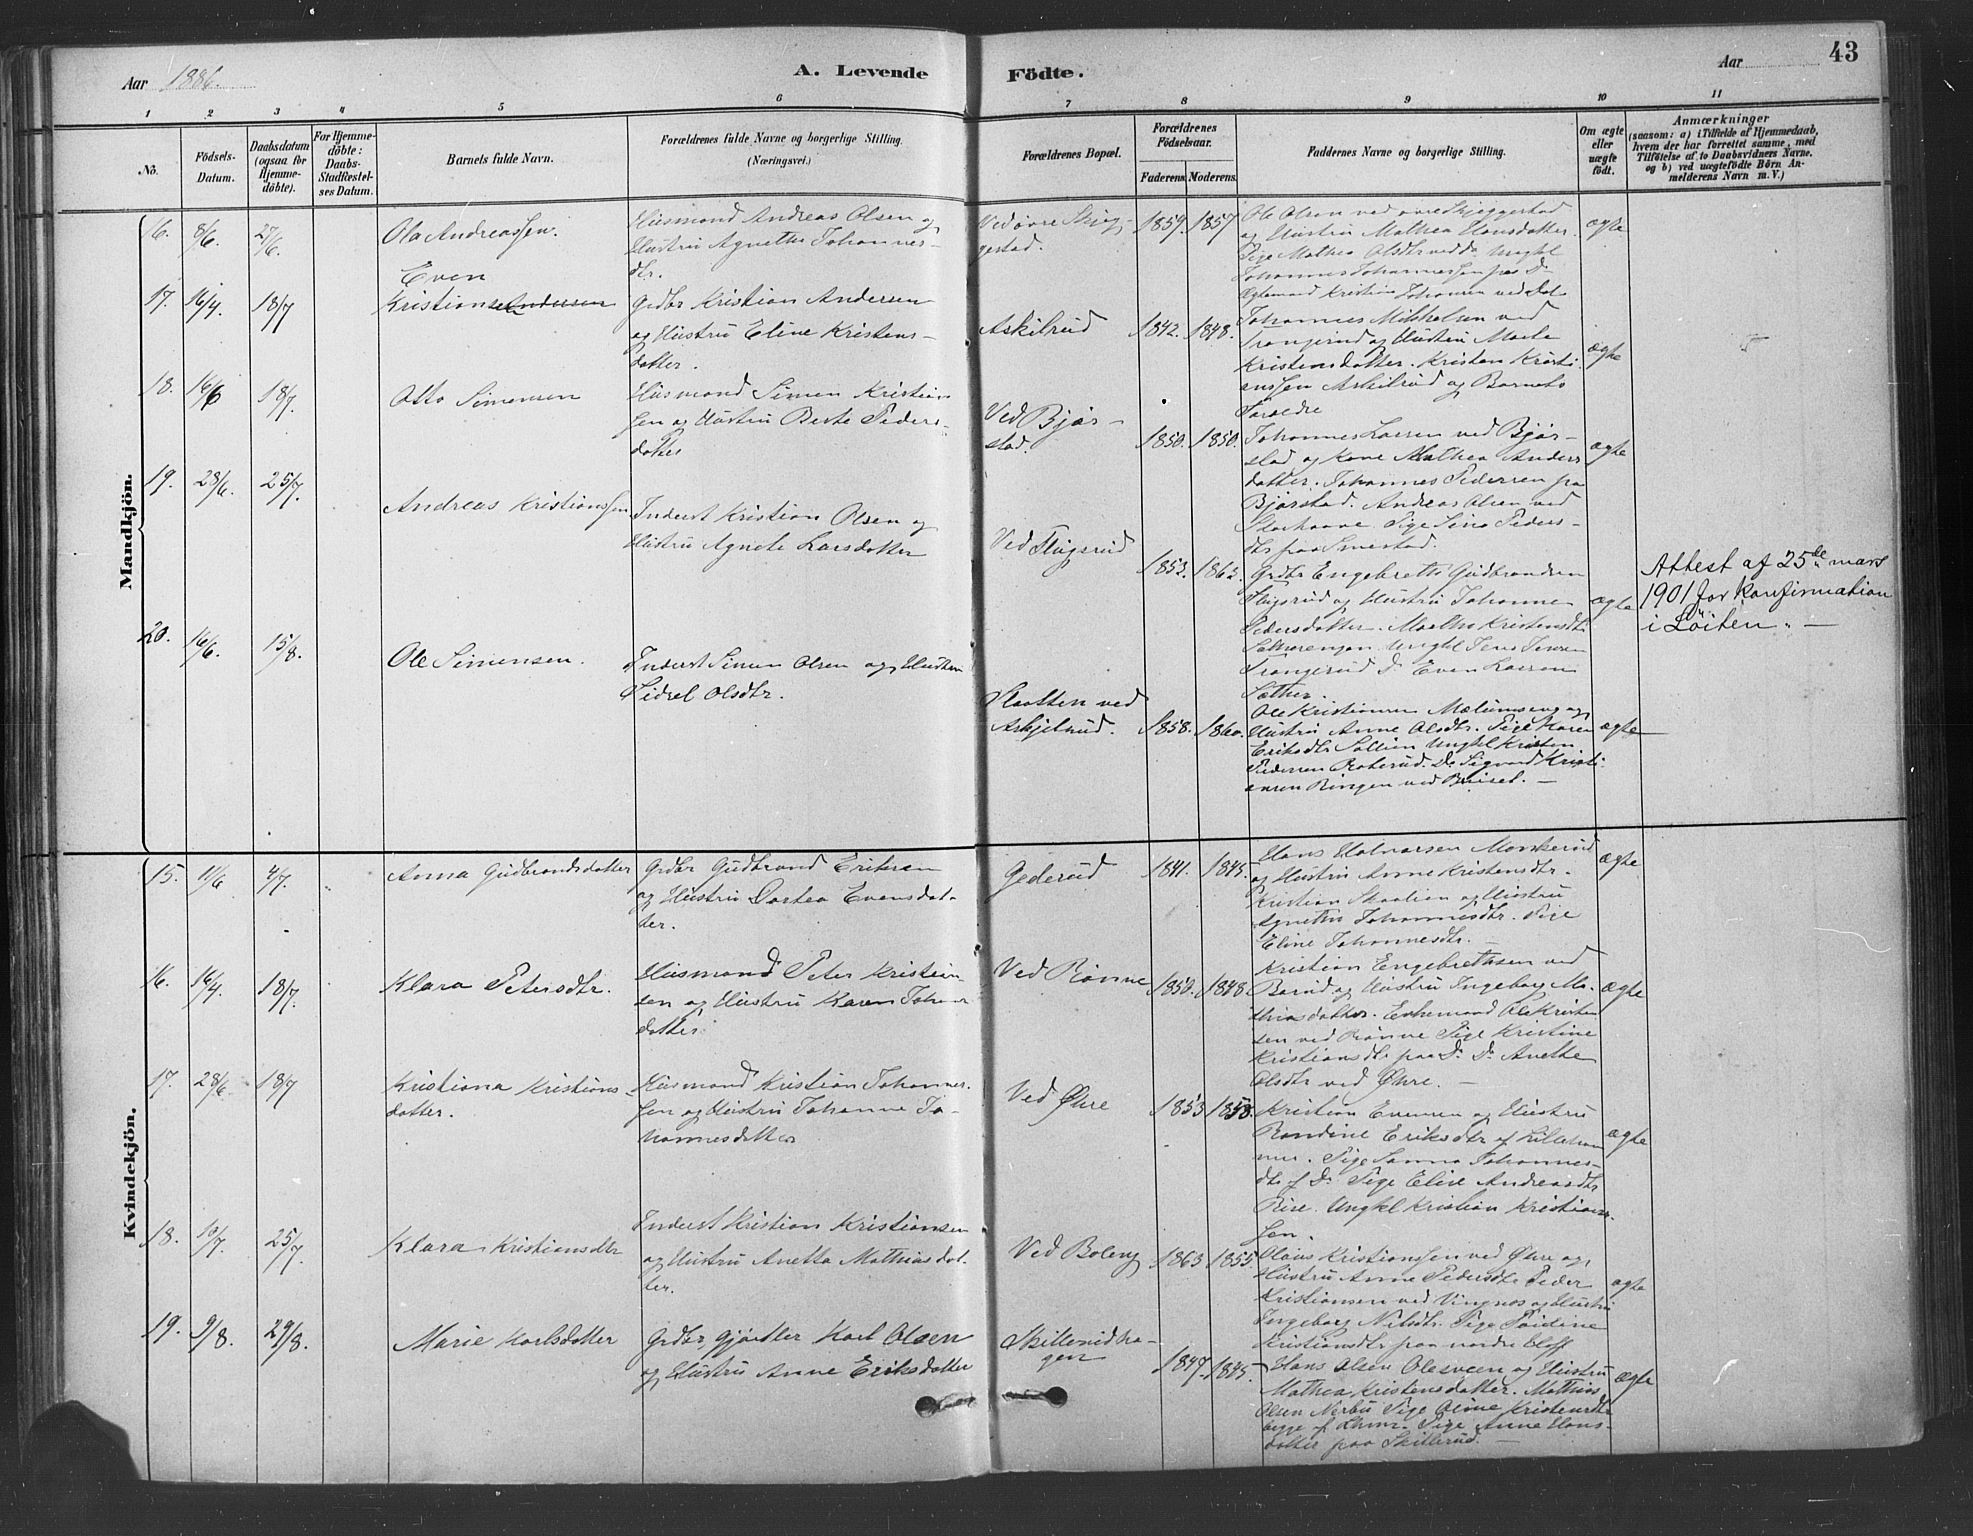 Aar 1886.
A. Levende Födte.
Aar
43
1 2 3 4 5 6 7 8 9 10 11
No.
Födsels-Datum.
Daabsdatum (ogsaa for Hjemme-döbte).
For Hjemme-döbte: Daabs-Stadfæstel-ses Datum.
Barnets fulde Navn.
Forældrenes fulde Navne og borgerlige Stilling.
(Næringsvei.)
Forældrenes Bopæl.
Forældrenes Födselsaar.
Faderens. Moderens.
Faddernes Navne og borgerlige Stilling.
Om ægte eller uægte födt.
Anmærkninger
(saasom: a) i Tilfælde af Hjemmedaab,
hvem der har forrettet samme, med
Tilföielse af to Daabsvidners Navne.
og b) ved uægtefödte Börn An-
melderens Navn m. V.)
Mandkjön.
16. 8/6. 27/6. Ola Andreassen.
Husmand Andreas Olsen og
Hustru Agnethe Johannes-
dtr.
Ved øvre Skjæg-
gestad.
1859. 1857
Ole Olsen ved øvre Skjeggestad
og Hustru Mathea Hansdatter.
Pige Mathea Olsdtr ved do Ungkl
Johannes Johannessen paa Do
Ægtemand Kristian Johansen ved Do
ægte
17. 16/4. 18/7
Even
Kristiansen Andersen
Grdbr Kristian Andersen
og Hustru Eline Kristens-
datter.
Askilrud
1842. 1848.
Johannes Mikkelsen ved
Trangerud og Hustru Marte
Kristensdatter. Kristen Kristi-
anssen Askilrud og Barnets
Foreldre
ægte
18. 16/6 18/7. Otto Simensen
Husmand Simen Kristian
sen og Hustru Berte Peders-
datter
Ved Bjør-
stad.
1850. 1850.
Johannes Larsen ved Bjør-
stad og Kone Mathea Anders
datter. Johannes Pedersen paa
Bjørstad. Andreas Olsen ved
Storhaave. Pige Sina Peders-
dtr paa Smestad.
ægte
19. 28/6. 25/7. Andreas Kristianssen
Inderst Kristian Olsen og
Hustru Agnete Larsdatter
Ved Flugsrud
1853. 1863.
Grdbr Engebreth Gudbrandsen
Flugsrud og Hustru Johanne
Pedersdatter. Marthe Kristensdtr
Sæterengen Ungkl Jens Jensen
Trangerud Do Even Larsen
Sæther.
ægte
Attest af 25de mars
1901 for Konfirmation
i Löiten. —
20. 16/6. 15/8. Ole Simensen.
Inderst Simen Olsen og Hustru
Sidsel Olsdtr.
Slaatten ved
Askjelrud.
1858. 1860.
Ole Kristiansen Mælumseng og
Hustru Anne Olsdtr. Pige Karen
Eriksdtr Sollien Ungkl Kristen
Pedersen Roterud. Do Sigvard Kristi-
ansen Ringen ved Buiset. —
ægte
Kvindekjön.
15. 11/6 4/7. Anna Gudbrandsdatter
Grdbr Gudbrand Eriksen
og Hustru Dortea Evensdat-
ter.
Gederud
1841. 1845.
Hans Halvorsen Monkerud
og Hustru Anne Kristensdtr.
Kristian Skaalien og Hustru
Agnethe Johannesdtr. Pige
Eline Johannesdtr. —
ægte
16. 16/4. 18/7. Klara Petersdtr.
Husmand Peter Kristian-
sen og Hustru Karen Johans
datter
Ved Rønne
1850. 1848.
Kristian Engebrethsen ved
Borud og Hustru Ingeborg Ma-
thiasdatter. Enkemand Ole Kristen
sen ved Rønne Pige Kristine
Kristiansdtr paa Do. Do Anette
Olsdtr ved Øhre. —
ægte
17. 28/6. 18/7 Kristiana Kristians-
datter.
Husmand Kristian Johannes-
sen og Hustru Johanne Jo-
hannesdatter
Ved Øhre
1853 1858.
Kristian Evensen og Hustru
Randine Eriksdtr af Lilleham
mer. Pige Sanna Johannes-
dtr af Do Pige Elise Andreasdtr
Rise. Ungkl Kristian Kristians-
sen.
ægte
18. 10/7. 25/7. Klara Kristiansdtr
Inderst Kristian Kristiansen
og Hustru Anetta Mathiasdat-
ter.
Ved Boleng
1863 1855.
Olaus Kristianssen ved Øhre og
Hustru Anne Pedersdtr Peder
Kristiansen ved Vingnes og Hustru
Ingeborg Nilsdtr. Pige
Kristiansdtr paa nordre
ægte
19. 9/8. 29/8. Marie Karlsdatter
Grdbr gjørtler Karl Olsen
og Hustru Anne Eriksdatter
Skillerudha-
gen
1847. 1845.
Hans Olsen Olesveen og Hustru
Mathea Kristensdatter. Mathias
Olsen Nerbu Pige Oline Kristensdtr
begge af Lhmr. Pige Anne Hans-
datter paa Skillerud. —
ægte